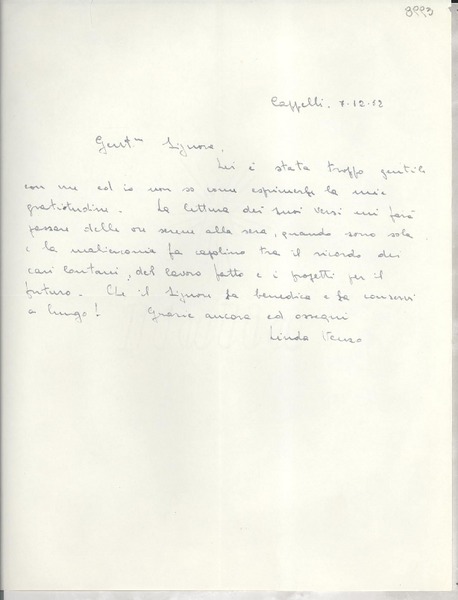 8993
Cappelli. 7-12-52
Gent.ma Signora.
Lei è stata troppo gentile
con me ed io non so come esprimerle la mia
gratitudine. La lettura dei suoi versi mi farà
passare delle ore serene alla sera, quando sono sola
e la malinconia fa capolino tra il ricordo dei
cari lontani, del lavoro fatto e i progetti per il
futuro. Che il Signore la benedica e la conservi
a lungo! Grazie ancora ed ossequi
Linda